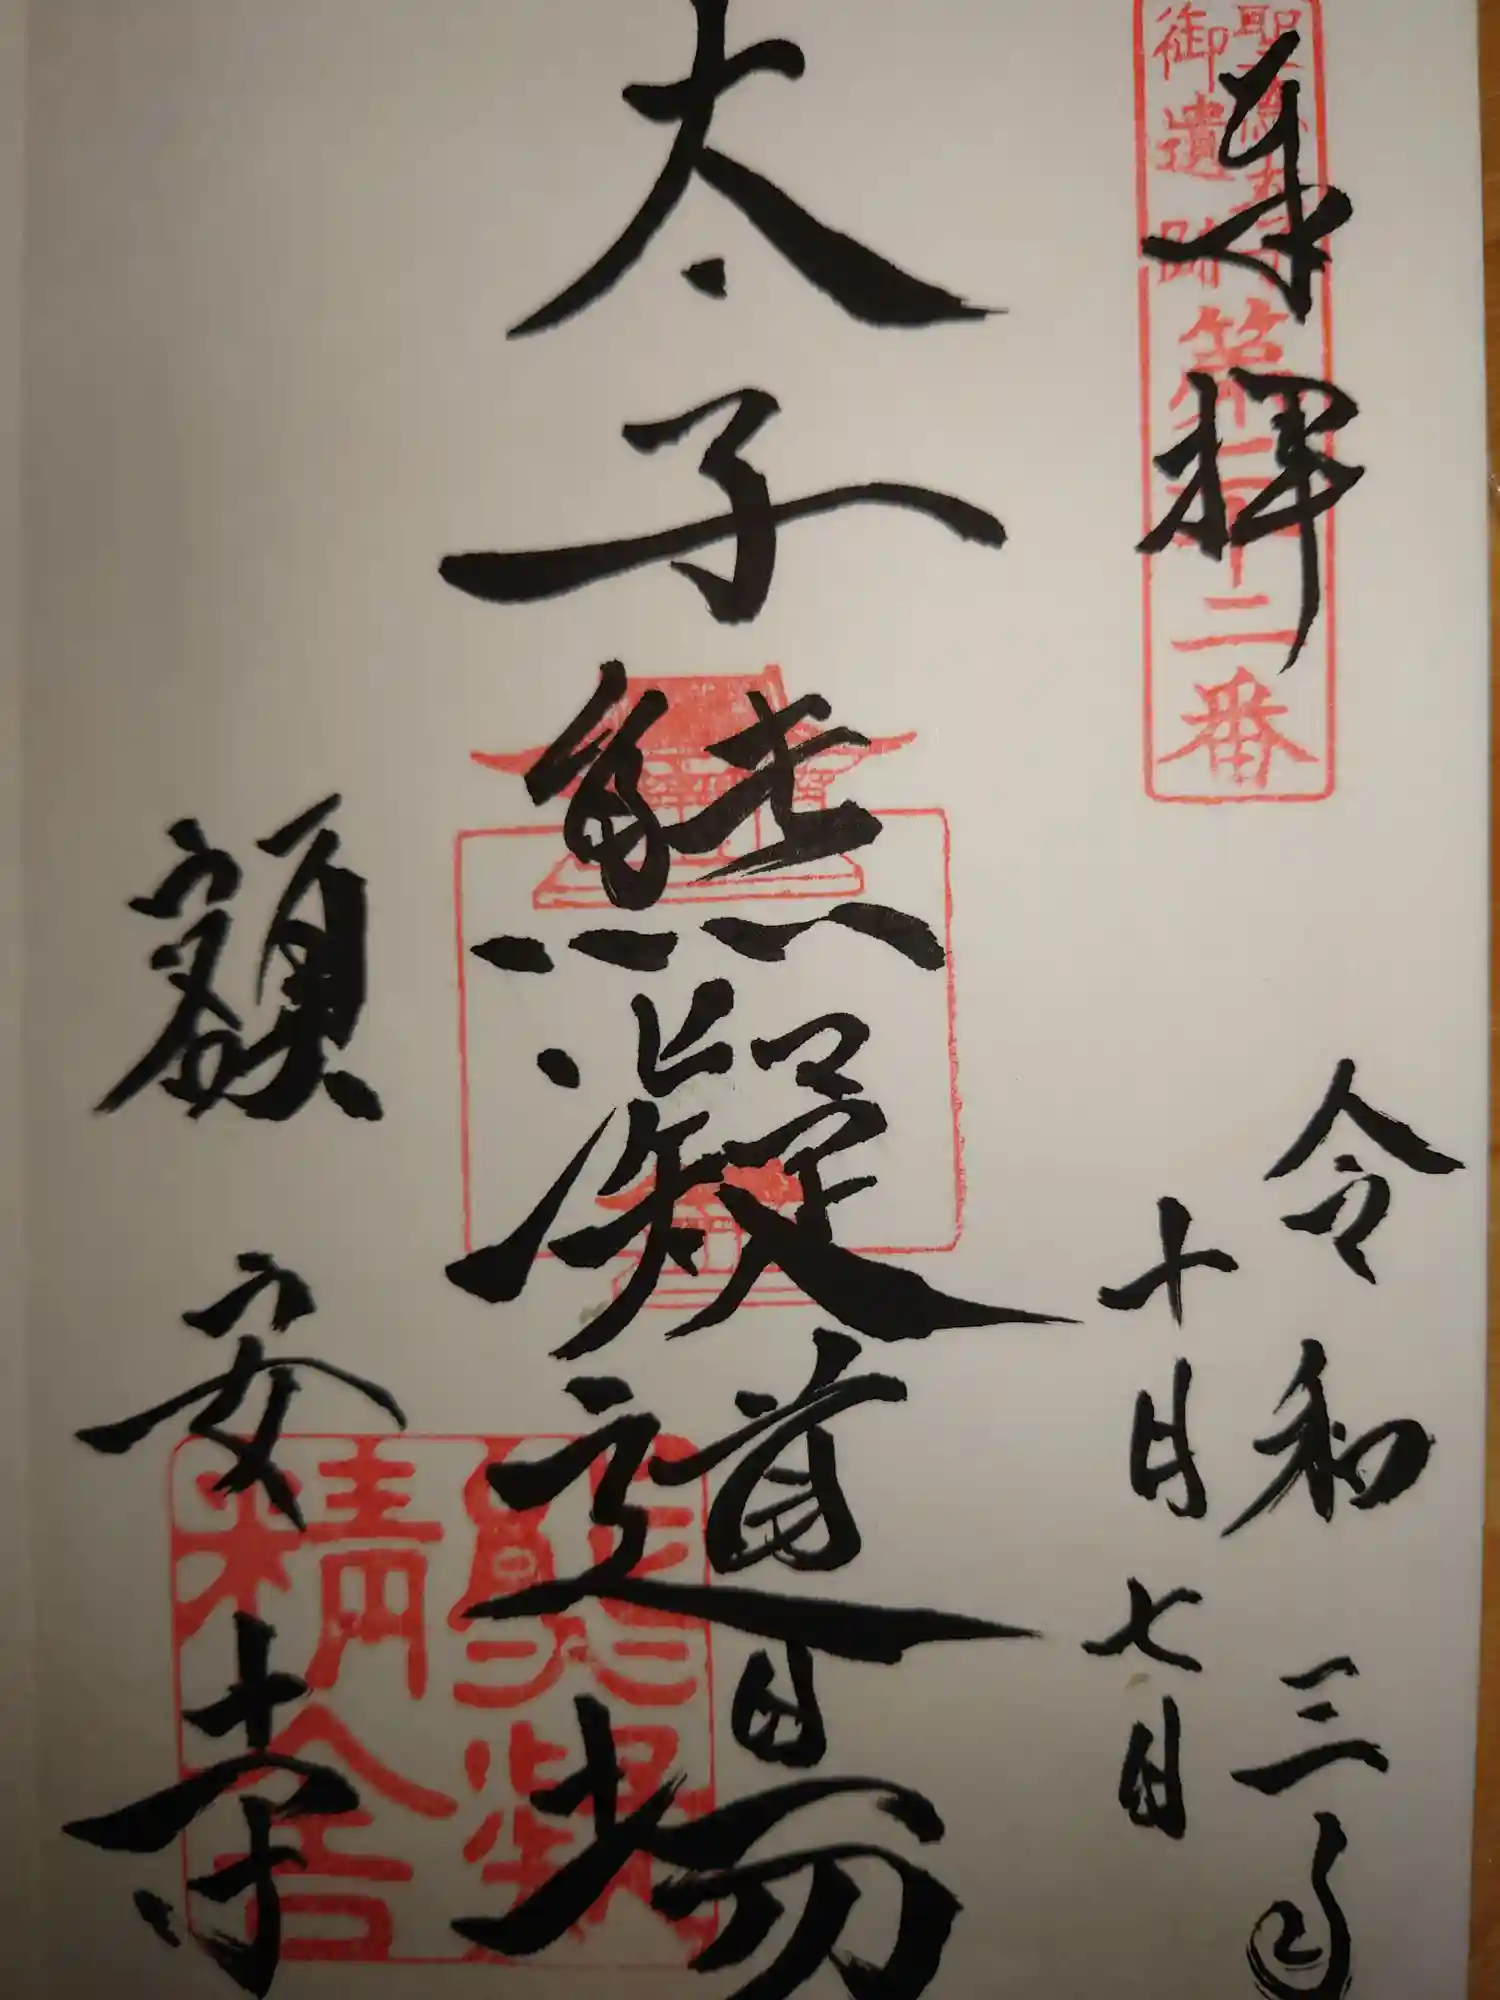 聖徳太子
御遺跡
第二十二番
奉拝
令和三年
十月七日
太子熊凝道場
額安寺
熊凝
精舎